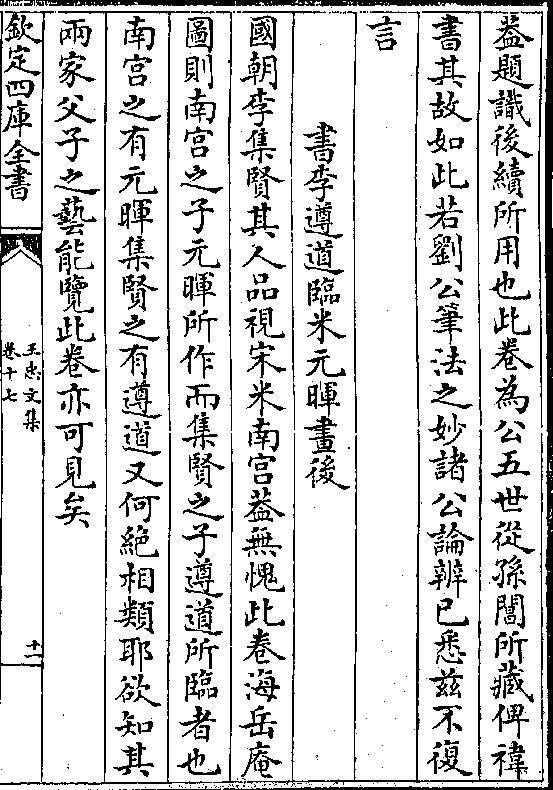 葢題識後續所用也此卷為公五世從孫閶所藏俾禕
書其故如此若劉公筆法之妙諸公論辨已悉兹不復
言
書李遵道臨米元暉畫後
國朝李集賢其人品視宋米南宫葢無愧此卷海岳庵
圖則南宫之子元暉所作而集賢之子遵道所臨者也
南宫之有元暉集賢之有遵道又何絶相類耶欲知其
兩家父子之藝能覽此卷亦可見矣
欽定四庫全書
王忠文集
卷十七
十一